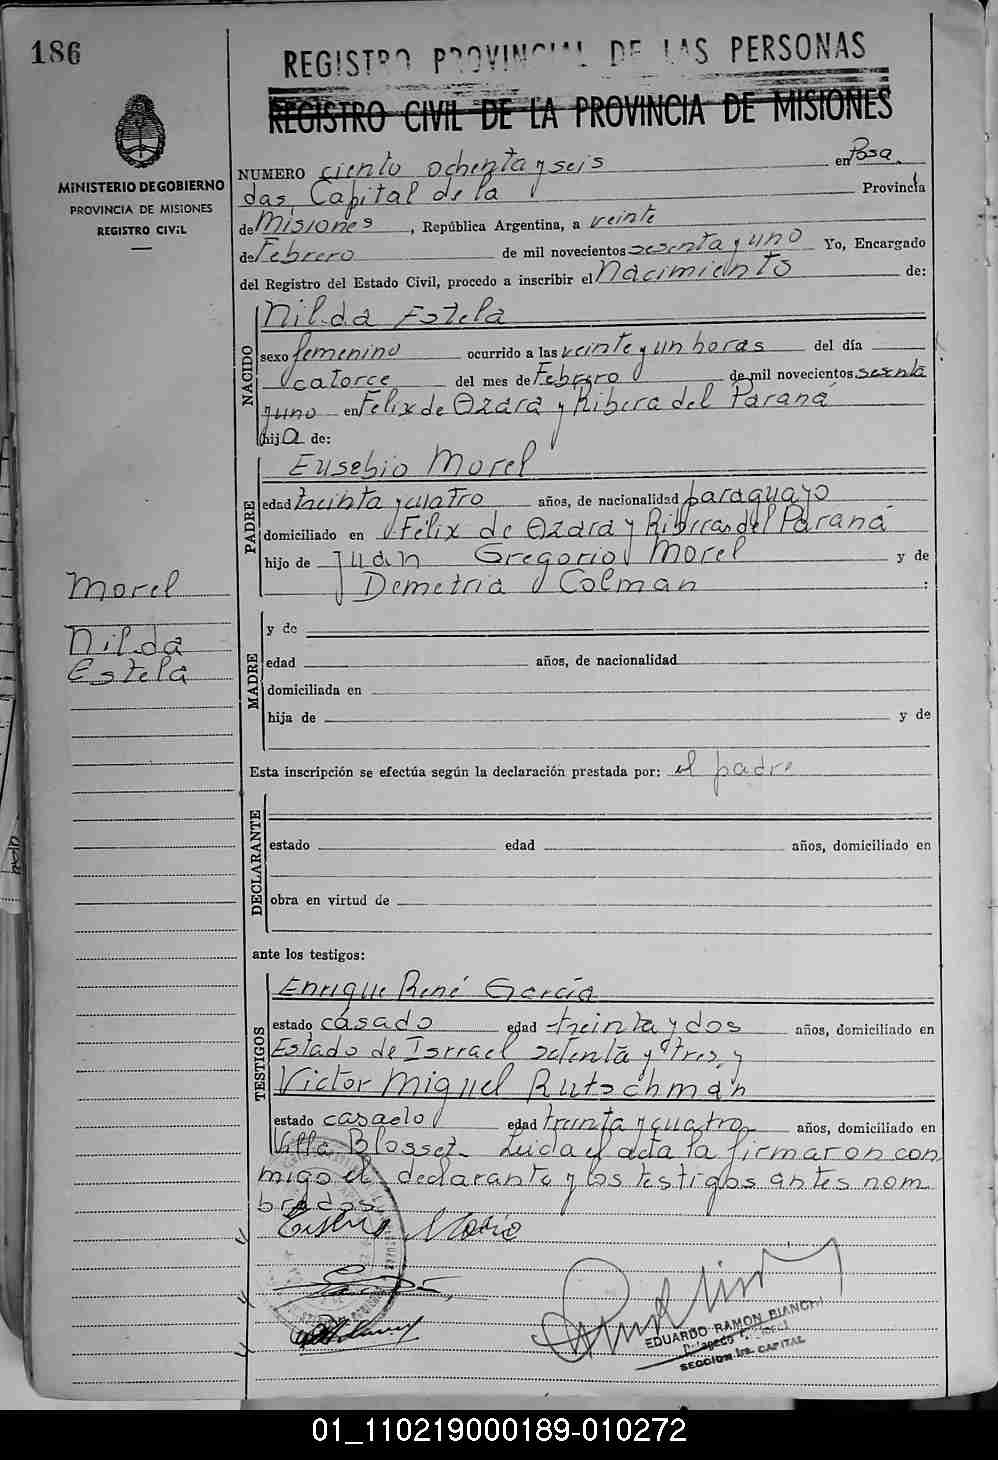 186
REGISTRO PROVINCIAL DE LAS PERSONAS
REGISTRO CIVIL DE LA PROVINCIA DE MISIONES
MINISTERIO DE GOBIERNO
PROVINCIA DE MISIONES
REGISTRO CIVIL
NUMERO ciento ochenta y seis en Posa
das, Capital de la Provincia
de Misiones, República Argentina, a veinte
de Febrero de mil novecientos sesenta y uno Yo, Encargado
del Registro del Estado Civil, procedo a inscribir el nacimiento de:
NACIDO
Nilda Estela
sexo femenino ocurrido a las veinte y un horas del día
catorce del mes de Febrero de mil novecientos sesenta
y uno en Felix de Ozara y Ribera del Paraná
hija de:
PADRE
Eusebio Morel
edad treinta y cuatro años, de nacionalidad paraguayo
domiciliado en Félix de Ozara y Riberas del Paraná
hijo de Juan Gregorio Morel y de
Demetria Colman :
Morel
Nilda
Estela
MADRE
y de
edad años, de nacionalidad
domiciliada en
hija de y de
Esta inscripción se efectúa según la declaración prestada por: el padre
DECLARANTE
estado edad años, domiciliado en
obra en virtud de
ante los testigos:
TESTIGOS
Enrique René García
estado casado edad treinta y dos años, domiciliado en
Estado de Isrrael setenta y tres, y
Victor Miguel Rutschman
estado casado edad treinta y cuatro años, domiciliado en
Villa Blosset. Leida el acta la firmaron con
migo el declarante y los testigos antes nom
brados.
EDUARDO RAMON BIANCHI
SECCION 1ra. CAPITAL
01_110219000189-010272